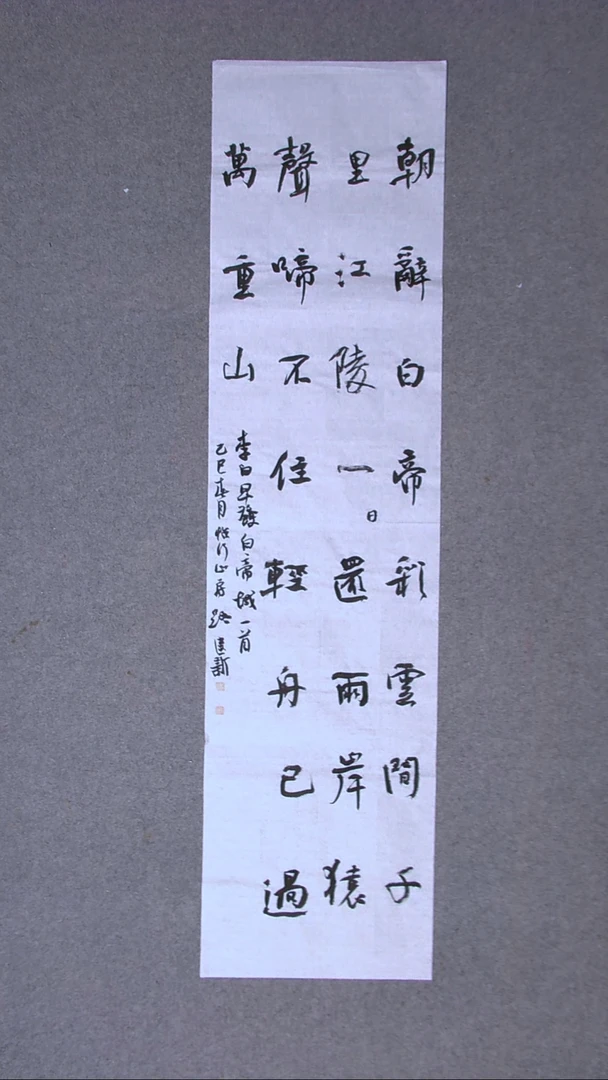 朝辭白帝彩雲間子
里江陵一日還雨岸猿
聲啼不住輕舟已過
萬重山
李白早發白帝城一首
巳春月山房